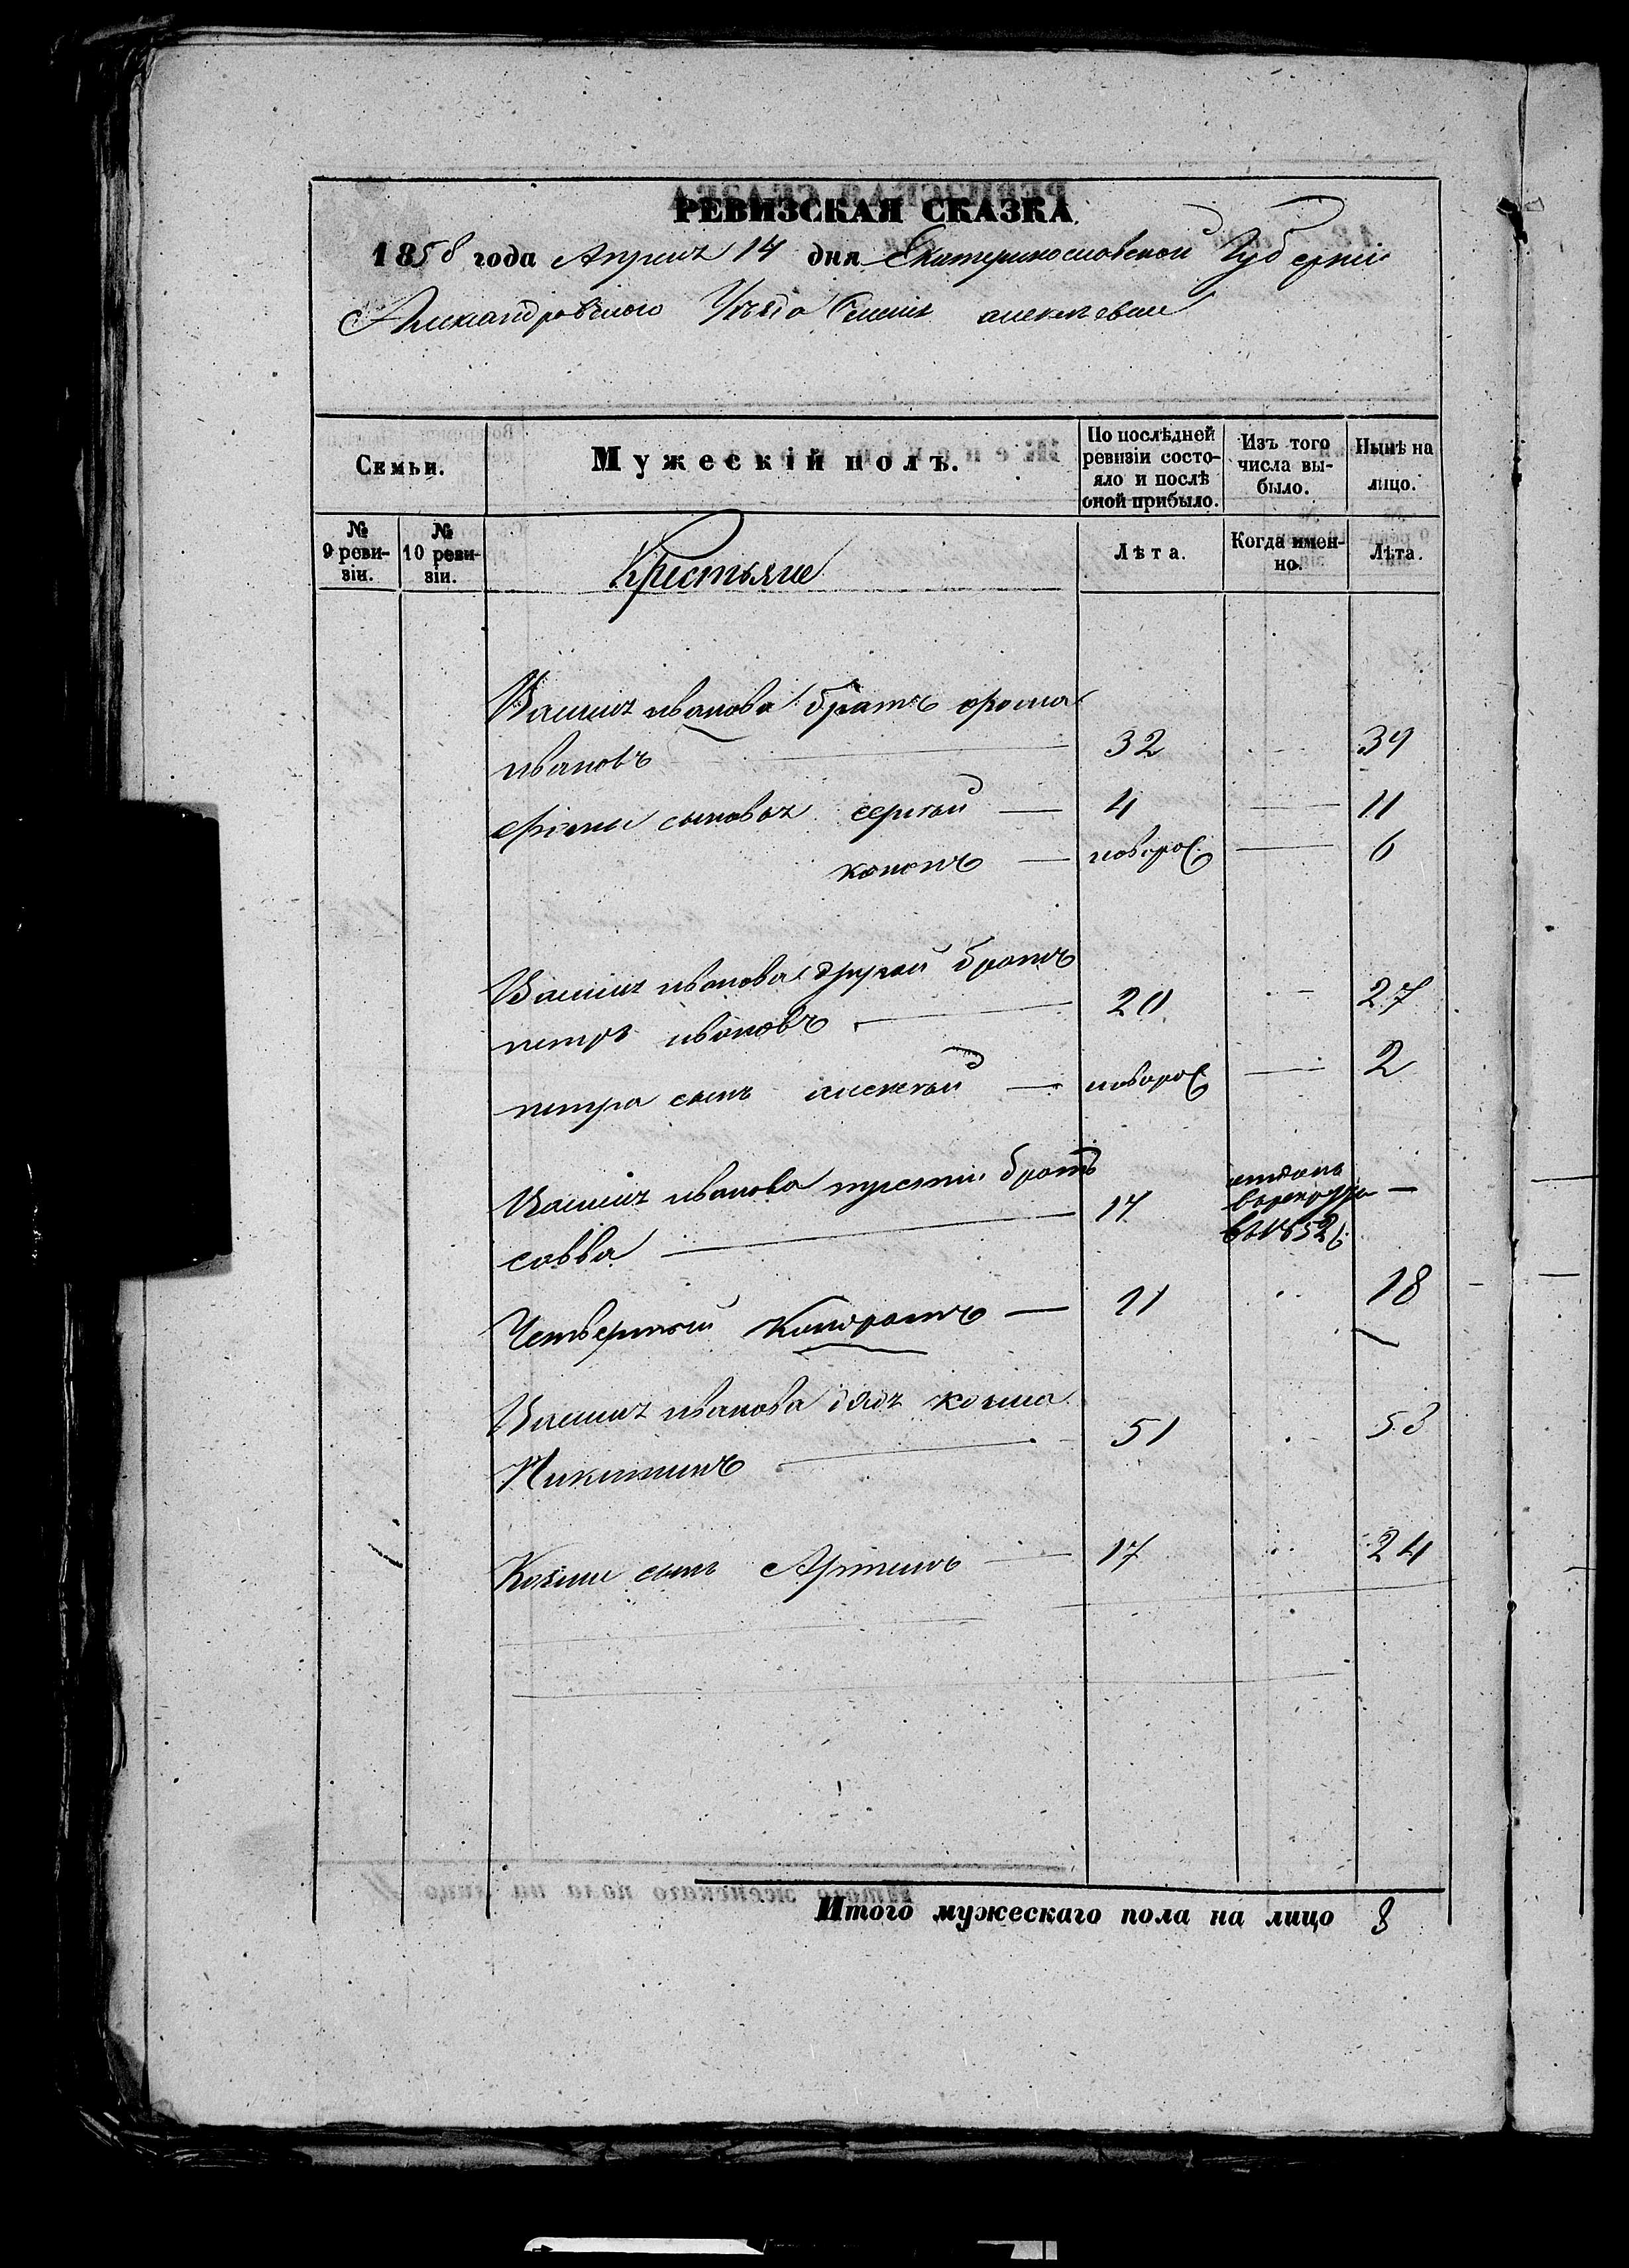 РЕВИЗСКАЯ СКАЗКА.
1858 года Апреля 14 дня Екатеринославской Губернии
Александровского Уезда Селения алексеевки
Семьи.
Мужескій полъ.
По послѣдней ревизіи состо-яло и послѣ оной прибыло.
Изъ того числа вы-было.
Нынѣ на лицо.
№ 9 реви-зіи.
№ 10 реви-зіи.
Крестьяне
Лѣта.
Когда имен-но.
Лѣта.
иванова братъ фома
ивановъ 32 39
фомы сыновья сергей 4 11
кононъ новорож 6
иванова другой братъ
петръ ивановъ 20 27
петра сынъ алексей новорож 2
иванова третий братъ
савва 17 отданъ в рекруты в 1852 г. —
Четвертый Кондратъ 11 18
иванова дядя козма
Никитинъ 51 58
Козмы сынъ Артемъ 17 24
Итого мужескаго пола на лицо 8